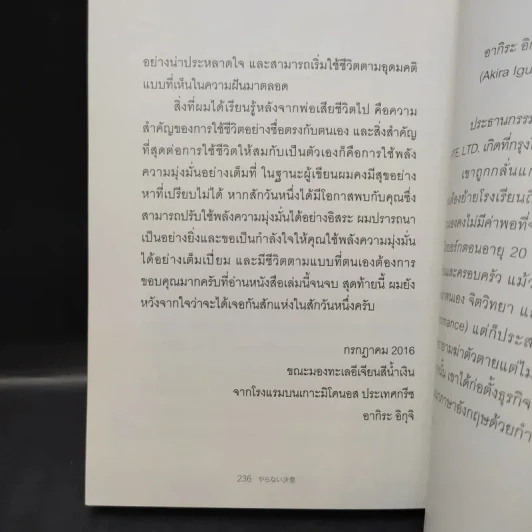 อย่างน่าประหลาดใจ และสามารถเริ่มใช้ชีวิตตามอุดมคติ
แบบที่เห็นในความฝันมาตลอด
สิ่งที่ผมได้เรียนรู้หลังจากพ่อเสียชีวิตไป คือความ
สำคัญของการใช้ชีวิตอย่างซื่อตรงกับตนเอง และสิ่งสำคัญ
ที่สุดต่อการใช้ชีวิตให้สมกับเป็นตัวเองก็คือการใช้พลัง
ความมุ่งมั่นอย่างเต็มที่ ในฐานะผู้เขียนผมคงมีสุขอย่าง
หาที่เปรียบไม่ได้ หากสักวันหนึ่งได้มีโอกาสพบกับคุณซึ่ง
สามารถปรับใช้พลังความมุ่งมั่นได้อย่างอิสระ ผมปรารถนา
เป็นอย่างยิ่งและขอเป็นกำลังใจให้คุณใช้พลังความมุ่งมั่น
ได้อย่างเต็มเปี่ยม และมีชีวิตตามแบบที่ตนเองต้องการ
ขอบคุณมากครับที่อ่านหนังสือเล่มนี้จนจบ สุดท้ายนี้ ผมยัง
หวังจากใจว่าจะได้เจอกันสักแห่งในสักวันหนึ่งครับ
กรกฎาคม 2016
ขณะมองทะเลอีเจียนสีน้ำเงิน
จากโรงแรมบนเกาะมิโคนอส ประเทศกรีซ
อากิระ อิกุจิ
236 やらない決意
อากิระ อิก
(Akira Igu
ประธานกรรม
LTD. เกิดที่กรุงโ
เขาถูกกลั่นแก
ย้ายโรงเรียนถึ
คงไม่มีค่าพอที่จ
ตอนอายุ 20
และครอบครัว แม้ว
ตนเอง จิตวิทยา แล
mance) แต่ก็ประส
ฆ่าตัวตายแต่ไม
เขาได้ก่อตั้งธุรกิจ
ภาษาอังกฤษด้วยกำ